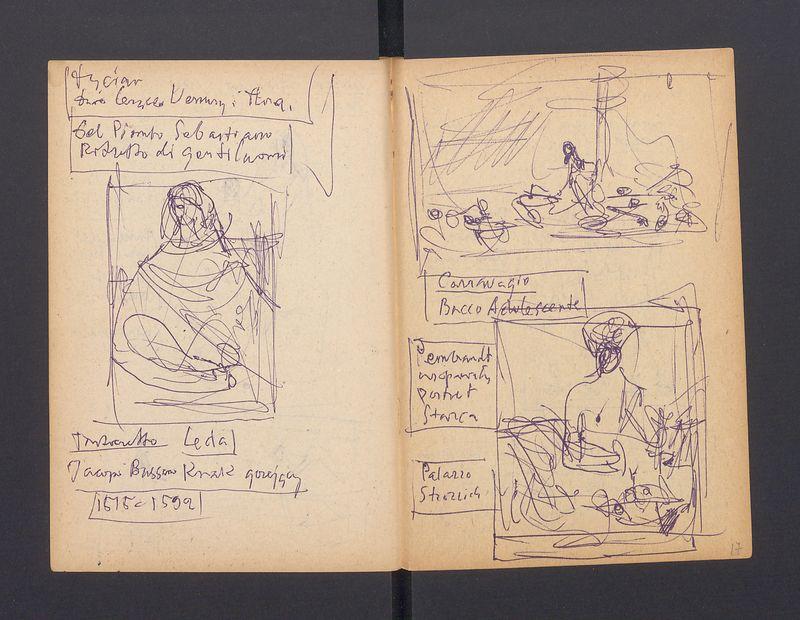 Tycjan
dwie Wenus i Flora.
Del Piombo Sebastiano
Ritratto di gentiluomo
Tintoretto Leda
Jacopo Bassano Krzak gorejący
1515-1592
Carravagio
Bacco Adolescente
Rembrandt
wspaniały
portret
Starca
Palazzo
Strozzich
17